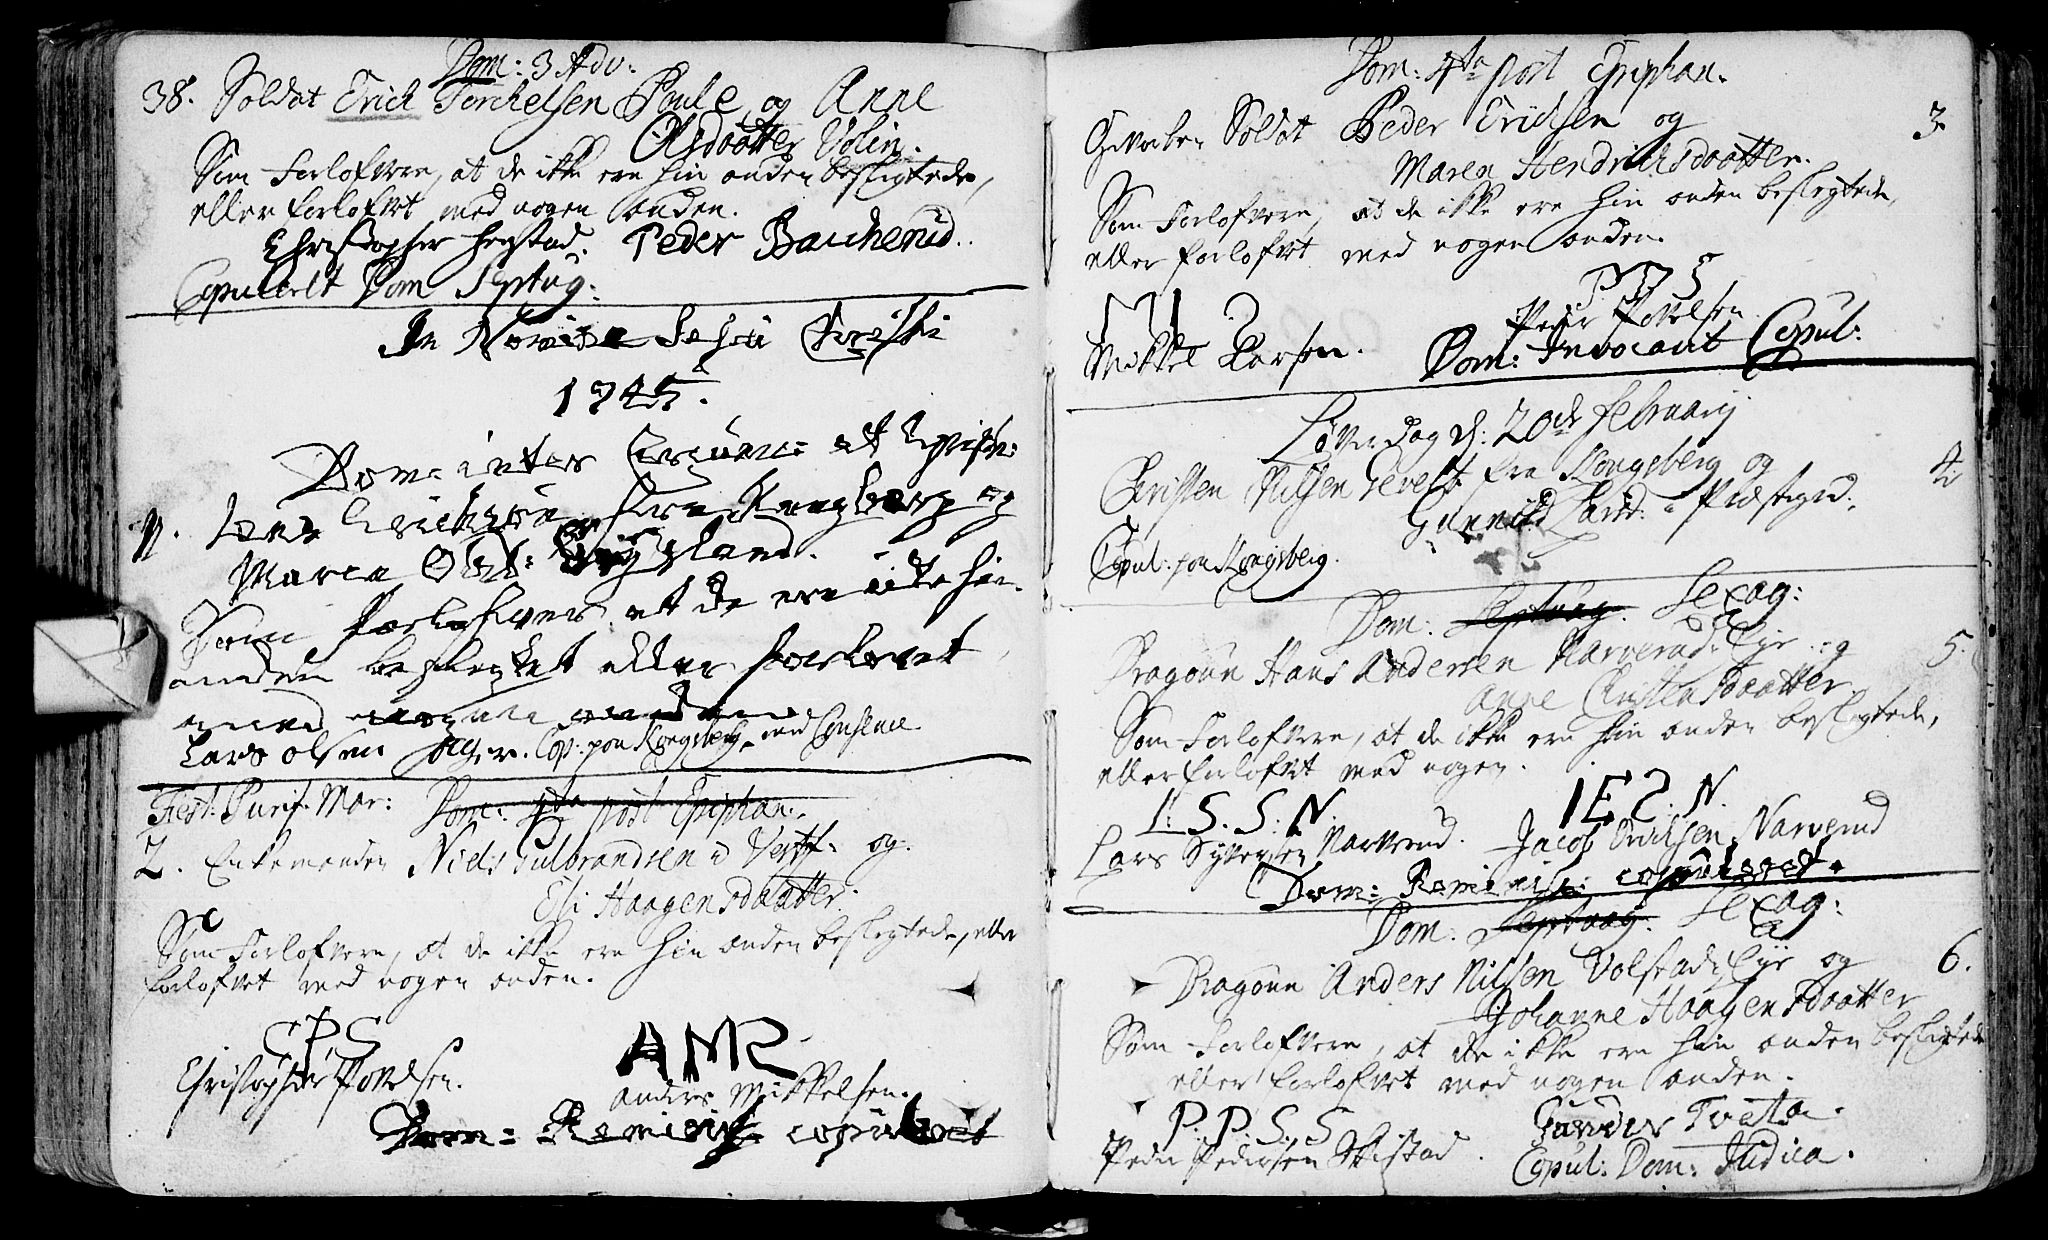 Dom: 3 Adv:
38. Soldat Erich Torchelsen Poule og Anne
Olsdaatter Volin.
Som Forlofvere, at de ikke ere hin anden beslegtede,
eller forlofvet med nogen anden.
Christopher Peder Bacherud.
Copulerit Dom Septug:
In Nomine Jesu Christi
1745.
Dom: inter et
1. Erichsen fra Kongsberg og
Maren
Som Forlofver at de ere icke hin
anden beslegtet eller forlovet
med nogen anden
Lars olsen Cop: paa Kongsberg med Consence
Fest: Purif: Mar: Dom: 4ta post Epiphan:
2. Enkemanden Niels Gulbrandsen og
Eli Haagensdaatter.
Som Forlofvere, at de ikke ere hin anden beslegtede, eller
forlofvet med nogen anden.
CPS AMS
Christopher Povelsen.
anders Mikkelsen.
Dom: Reminisc: copuleret
Dom: 4ta post Epiphan.
Soldat Peder Erichsen og 3
Maren Hendrichsdaatter.
Som Forlofvere, at de ikke ere hin anden beslegtede,
eller forlofvet med nogen anden.
Peder Povelsen
Mikkel Larsen. Dom: Invocavit Copul:
Løverdag d: 20de Februarij
Christen Nilsen fra Kongsberg og 4
Gunnild
Copul: paa Kongsberg.
Dom: Septuag. Sexag:
Dragoun Hans Andersen Narverud Eje og 5.
Anne Christensdaatter
Som Forlofvere, at de ikke ere hin anden beslegtede,
eller forlofvet med nogen.
L: S. S: N. I E S. N.
Lars Syversen Narverud. Jacob Narverud
Dom: Reminisc: copuleret.
Dom. Septuag. Sexag:
Dragoun Anders Nilsen Volstad Eje og 6.
Johanne Haagensdaatter
Som Forlofvere, at de ikke ere hin anden beslegtede
eller forlofvet med nogen anden.
P. P. S. S Tveta.
Peder Pedersen Skistad. Copul: Dom: Judica.